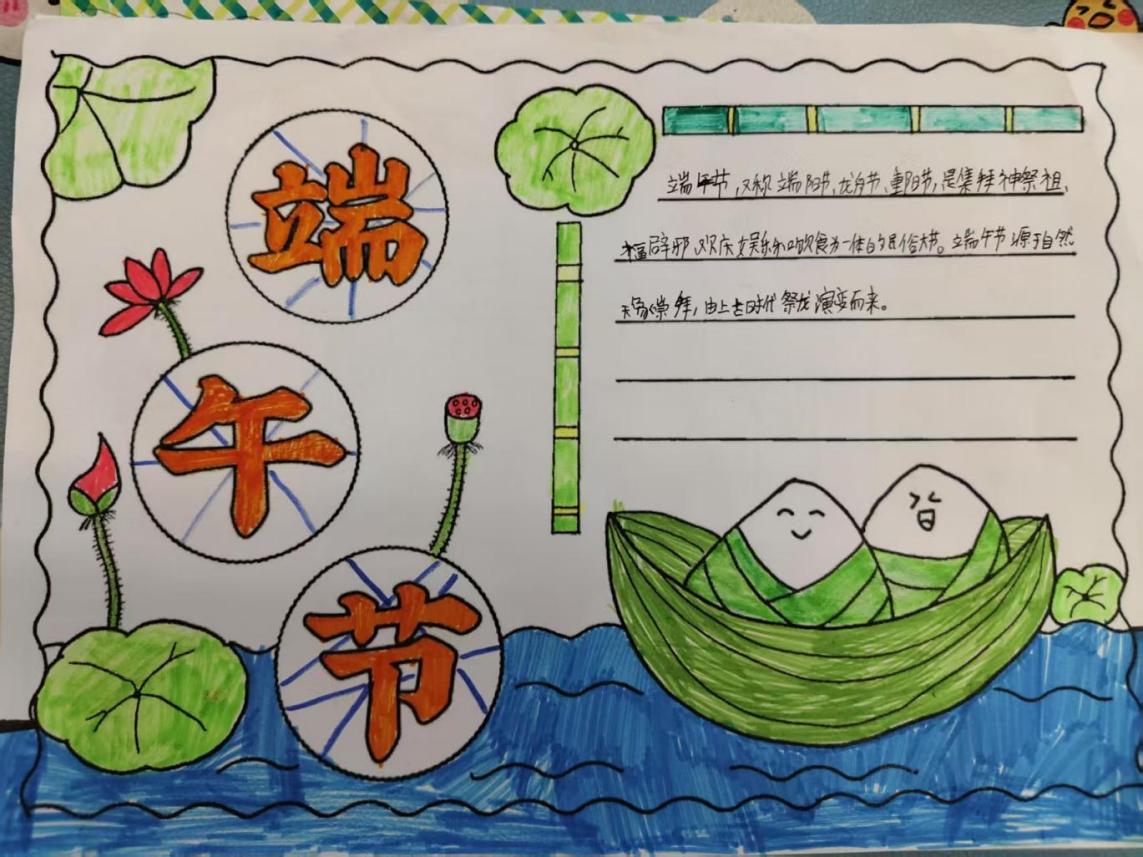 端
午
节
端午节,又称端阳节、龙舟节、重阳节,是集拜神祭祖、
福辟邪、欢庆娱乐和饮食为一体的民俗大节。端午节源于自然
天象崇拜,由上古时代祭龙演变而来。